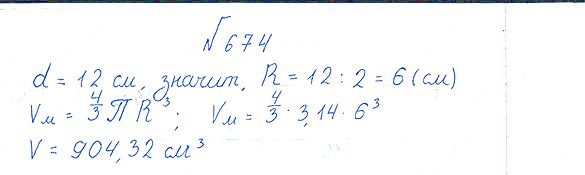 №674
d = 12 см, значит, R = 12 : 2 = 6 (см)
Vм = 4/3 П R³ ; Vм = 4/3 · 3,14 · 6³
V = 904,32 см³